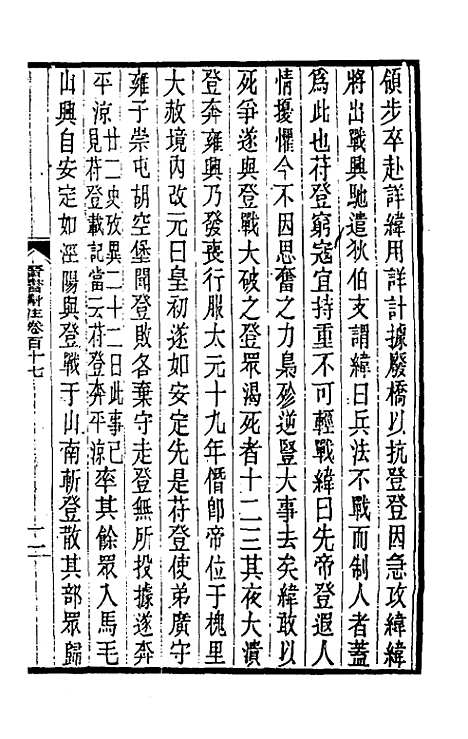 領步卒赴詳緯用詳計據廢橋以抗登登因急攻緯緯
將出戰興馳遣狄伯支謂緯曰兵法不戰而制人者蓋
爲此也苻登窮寇宜持重不可輕戰緯曰先帝登遐人
情擾懼今不因思奮之力梟殄逆豎大事去矣緯敢以
死爭遂與登戰大破之登眾渴死者十二三其夜大潰
登奔雍興乃發喪行服太元十九年僭卽帝位于槐里
大赦境内改元曰皇初遂如安定先是苻登使弟廣守
雍子崇屯胡空堡聞登敗各棄守走登無所投據遂奔
平涼廿二史攷異二十二曰此事已見苻登載記當云苻登奔平涼率其餘眾入馬毛
山興自安定如涇陽與登戰于山南斬登散其部眾歸
晉書斠注卷百十七
二